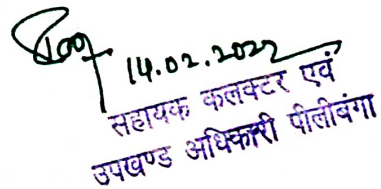 14.02.2022
सहायक कलक्टर एवं
उपखण्ड अधिकारी पीलीबंगा